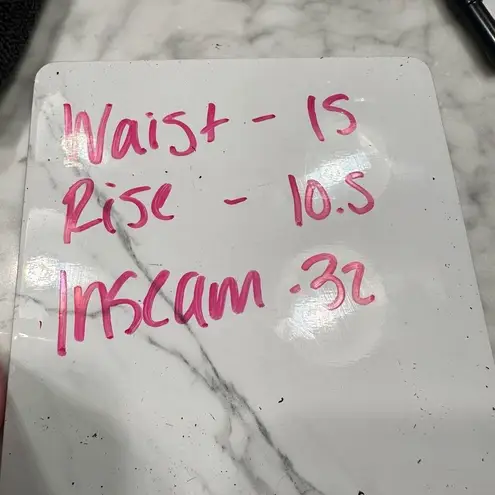 Waist - 15
Rise - 10.5
Inseam - 32